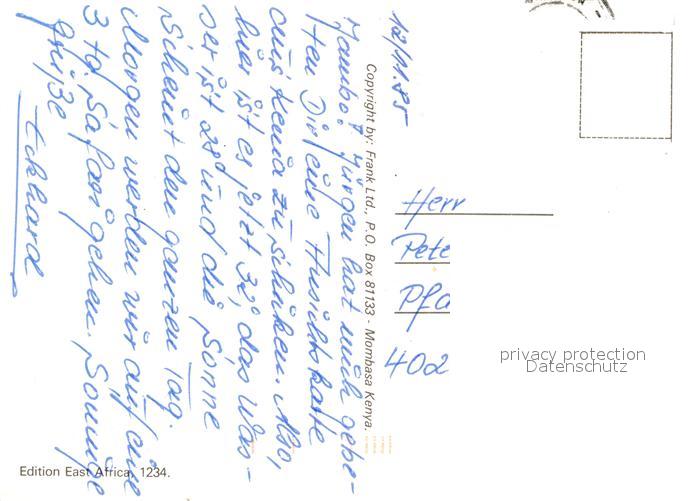 12/11.85
Jambo! Jürgen hat mich gebe-
ten Dir eine Ansichtskarte
aus Kenia zu schicken. Also,
hier ist es jetzt 32°, das Was-
ser ist 28° und die Sonne
scheint den ganzen Tag.
Morgen werden wir auf eine
3 tg. Safari gehen. Sonnige
Grüße
Eckhard
Copyright by: Frank Ltd., P.O. Box 81133 - Mombasa Kenya.
Herr
Pete
Pfa
402
privacy protection
Datenschutz
Edition East Africa, 1234.